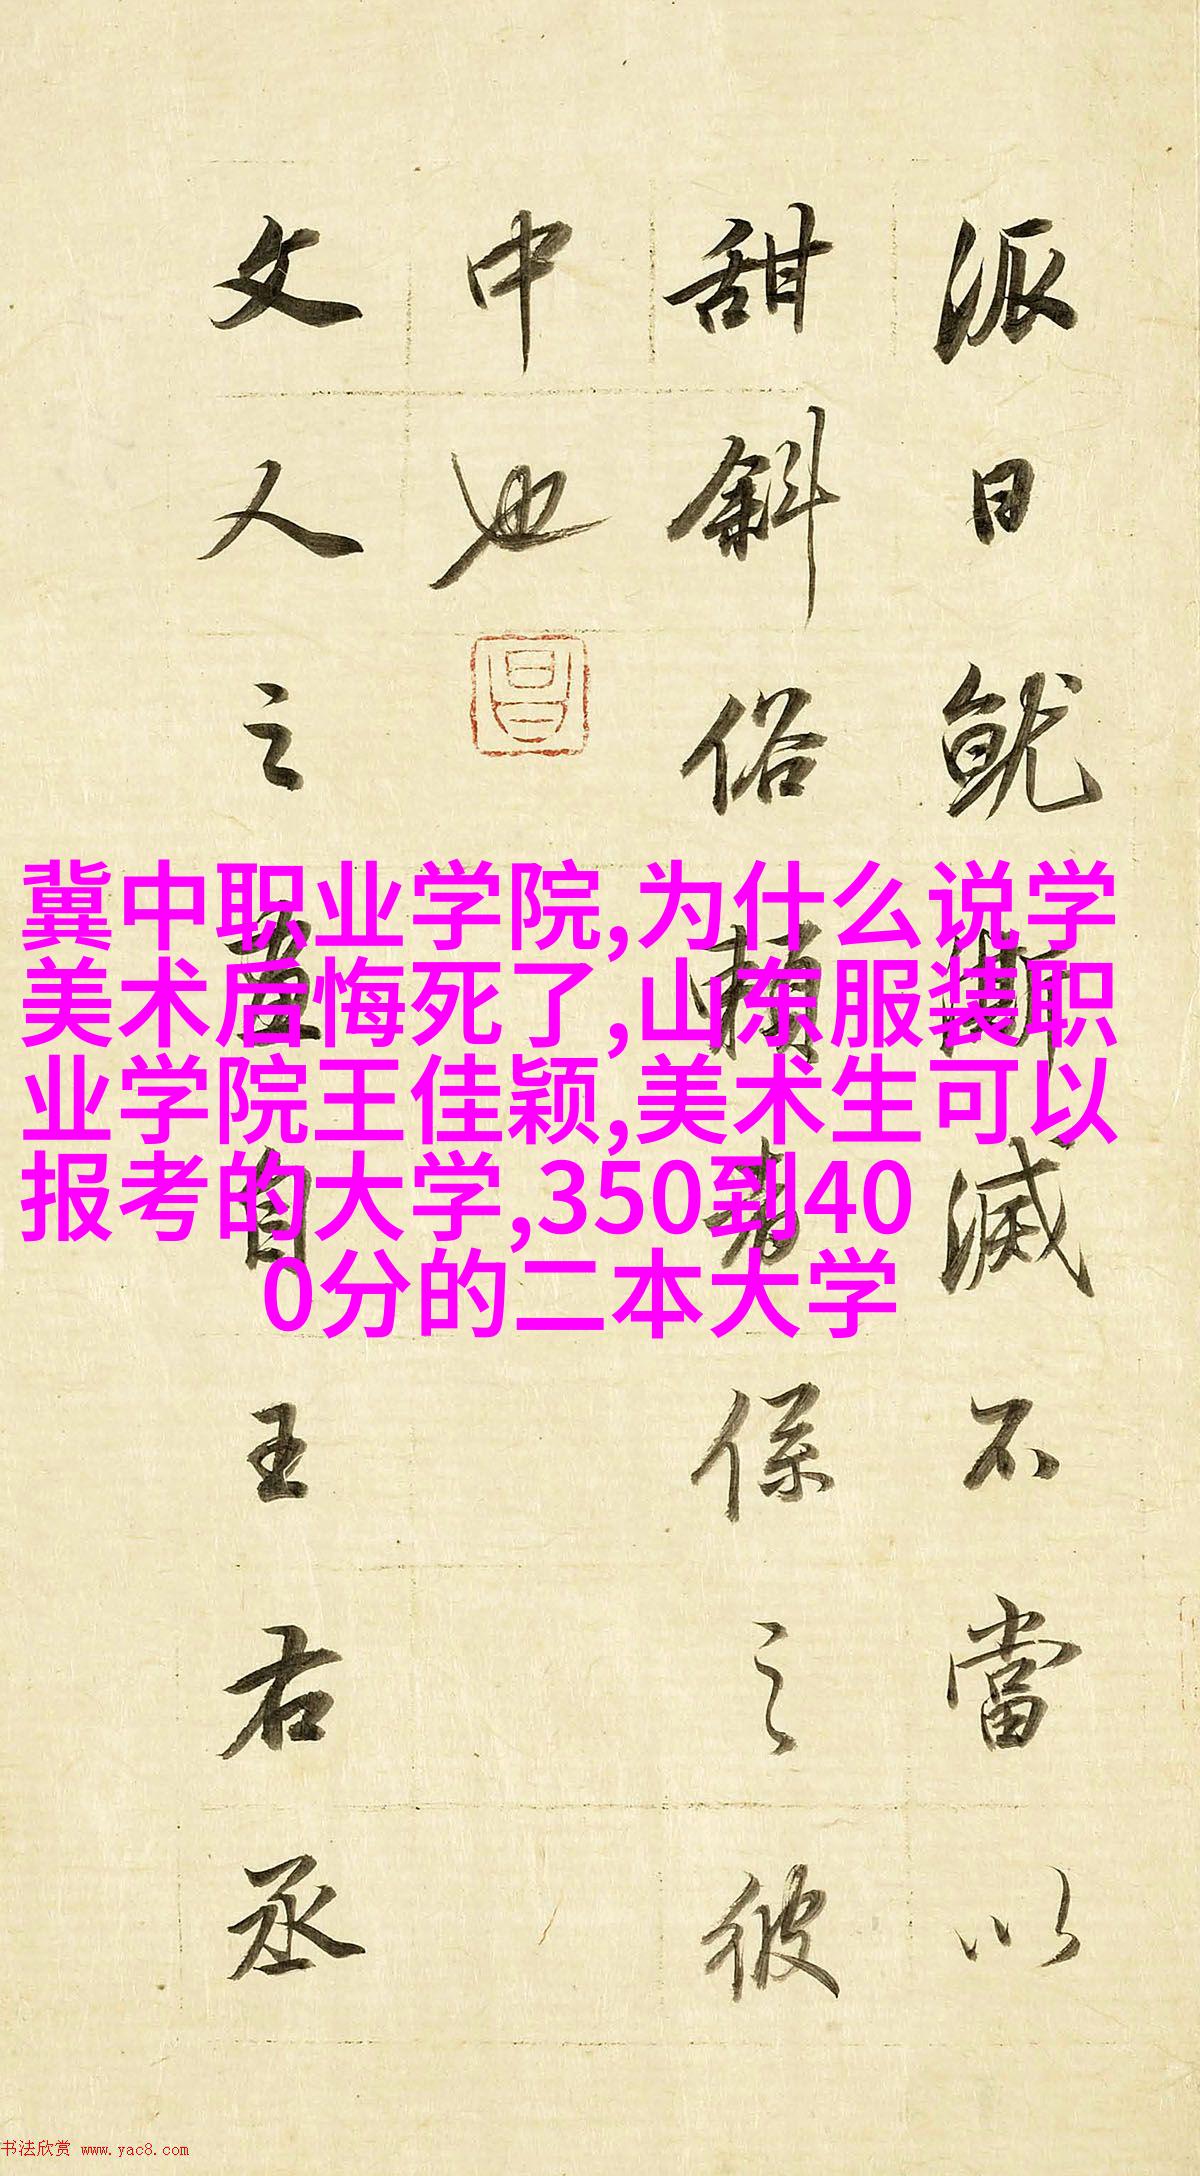 派日就澌滅不當以
甜斜俗賴者係之彼
中也
昌
文人之畫自王右丞
冀中职业学院,为什么说学
美术后悔死了,山东服装职
业学院王佳颖,美术生可以
报考的大学,350到40
0分的二本大学
书法欣赏 www.yac8.com